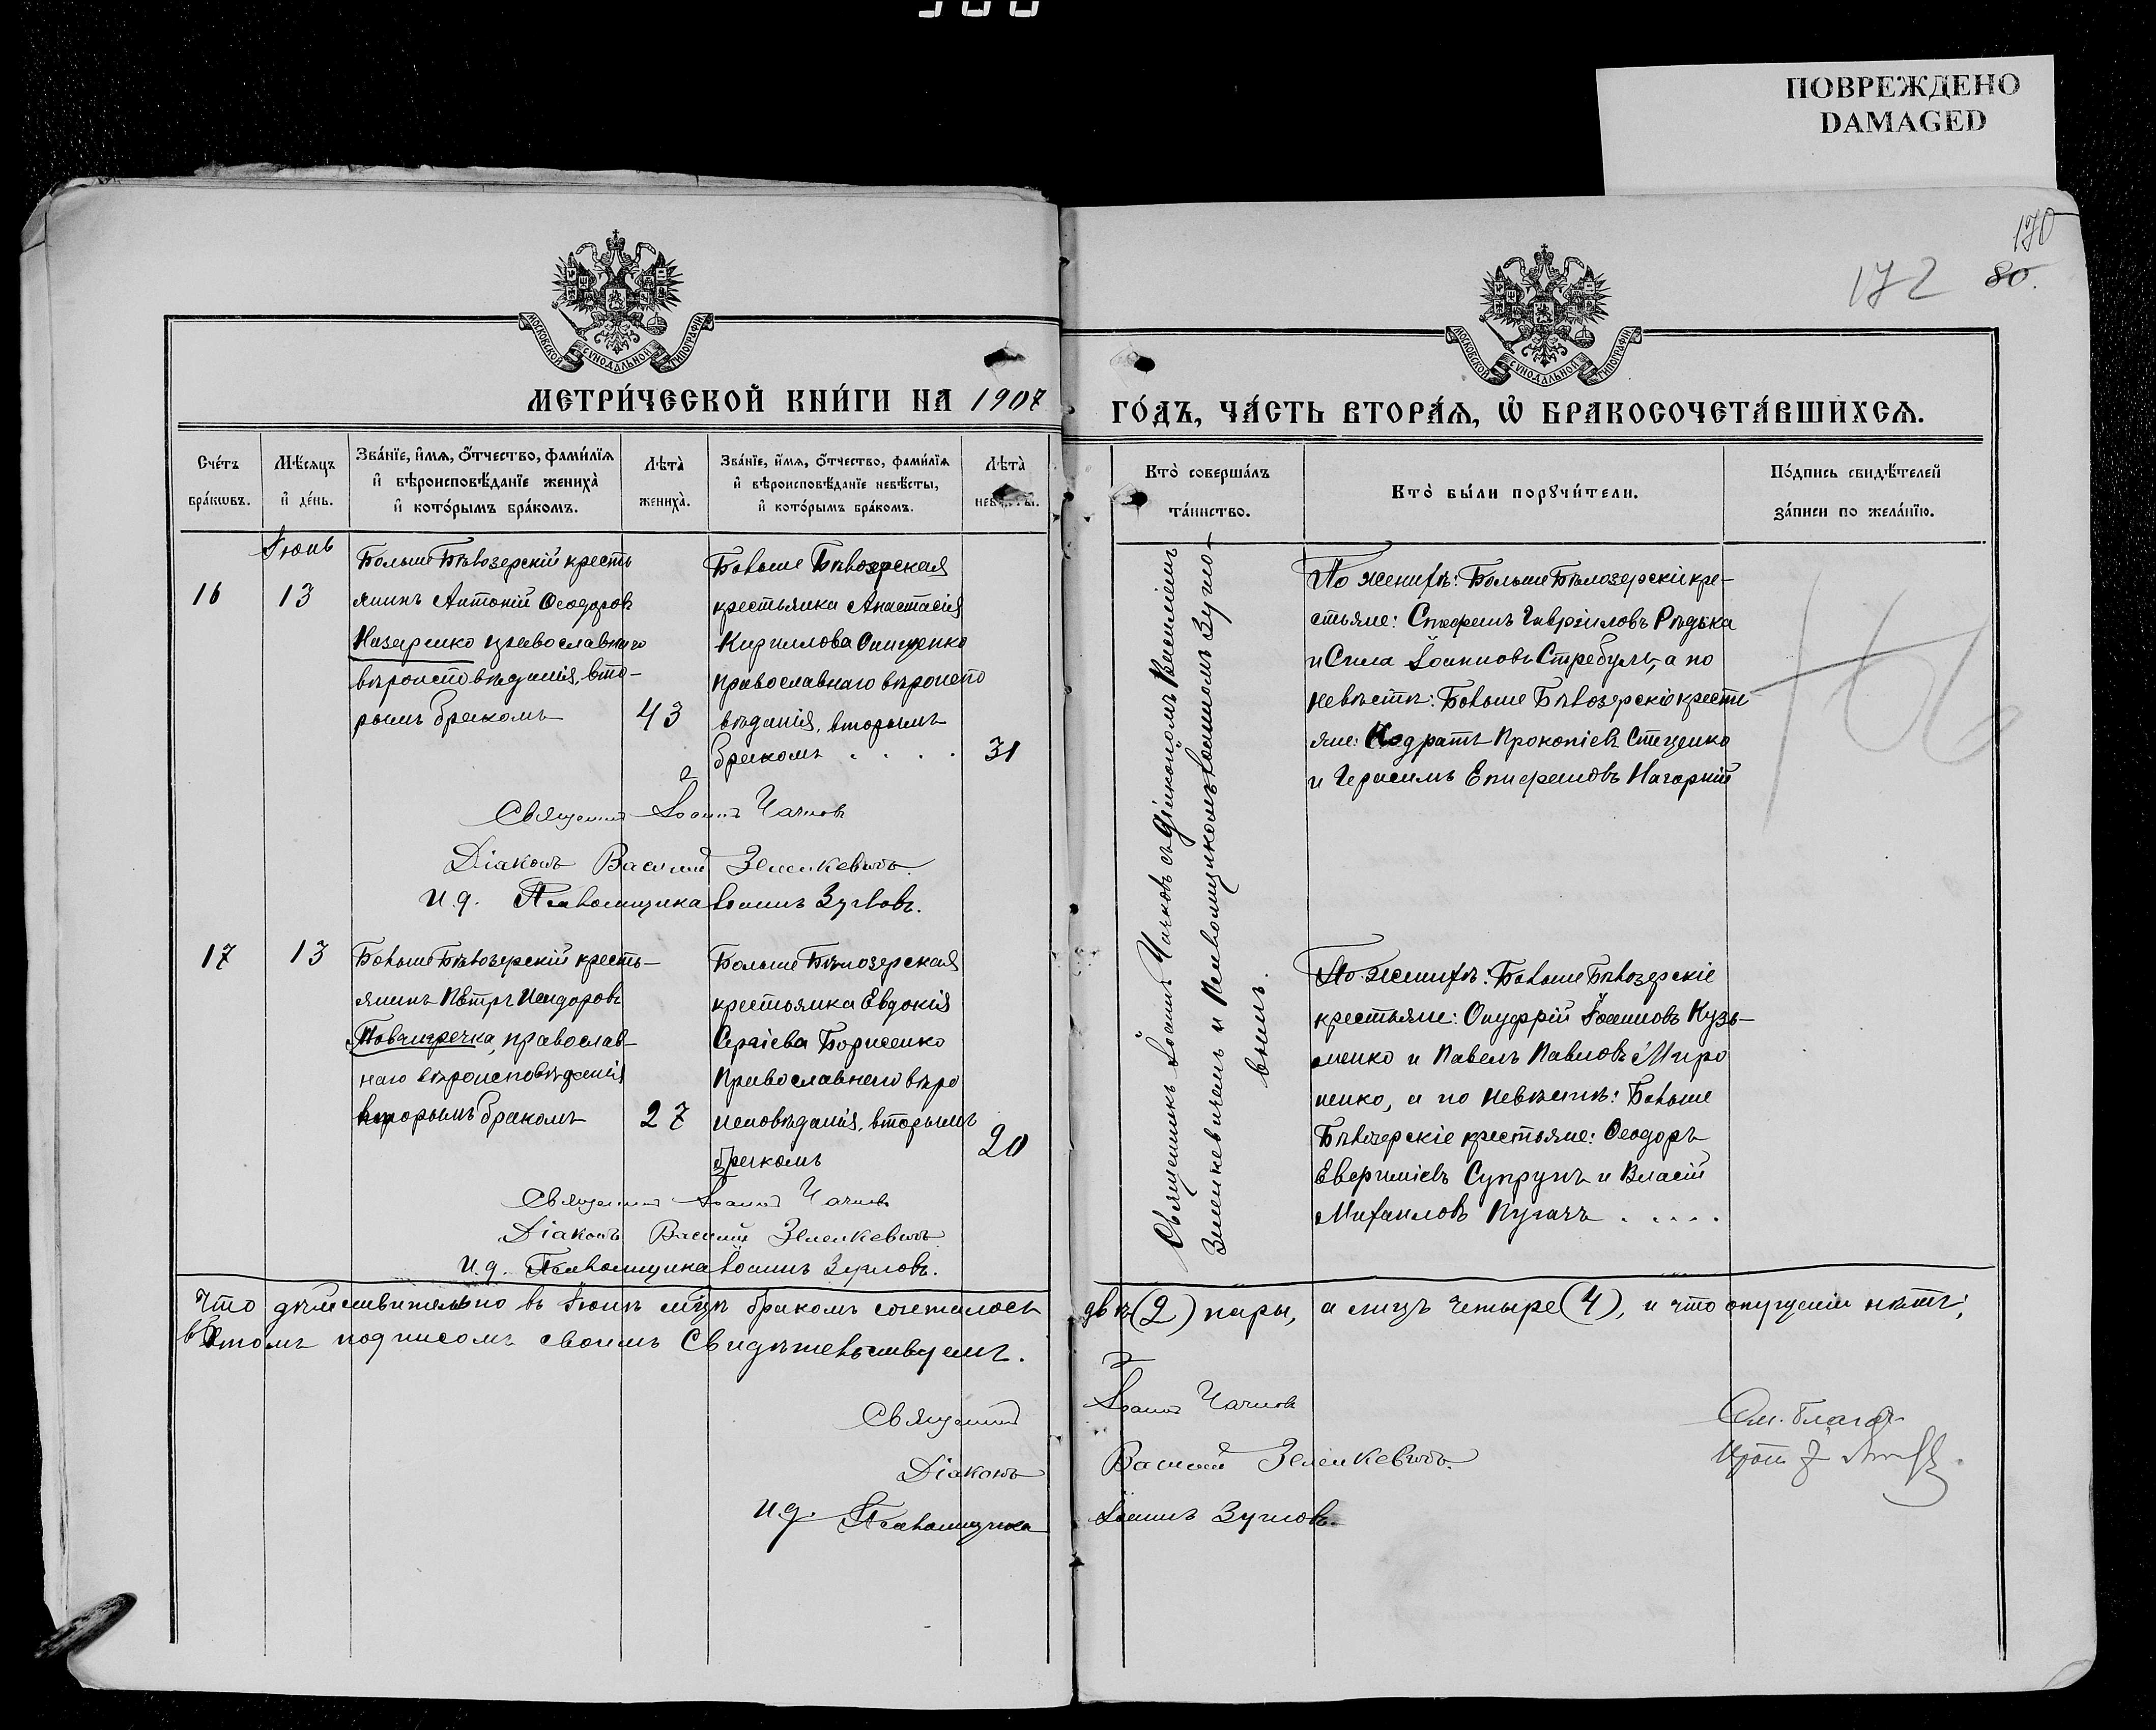 ПОВРЕЖДЕНО
DAMAGED
170
172 80.
МОСКОВСКОЙ СѴНОДАЛЬНОЙ ТИПОГРАФІИ
МОСКОВСКОЙ СѴНОДАЛЬНОЙ ТИПОГРАФІИ
МЕТРИ́ЧЕСКОЙ КНИ́ГИ НА 1907
ГО́ДЪ, ЧА́СТЬ ВТОРА́Я, Ѡ҆ БРАКОСОЧЕТА́ВШИХСЯ.
Сче́тъ
бра́кѡвъ.
Мѣ́сяцъ
и҆ де́нь.
Зва́нїе, и҆́мя, ѻ҆́тчество, фами́лїя
и҆ вѣроисповѣ́данїе жениха̀
и҆ кото́рымъ бра́комъ.
Лѣта̀
жениха̀.
Зва́нїе, и҆́мя, ѻ҆́тчество, фами́лїя
и҆ вѣроисповѣ́данїе невѣ́сты,
и҆ кото́рымъ бра́комъ.
Лѣта̀
невѣ́сты.
Кто̀ соверша́лъ
та́инство.
Кто̀ бы́ли порꙋчи́тели.
По́дпись свидѣ́телей
за́писи по жела́нїю.
Іюнь
16
13
Больше Бѣлозерскій кресть
янинъ Антоній Ѳеодоровъ
Назаренко православнаго
вѣроисповѣданія, вто-
рымъ бракомъ
43
Больше Бѣлозерская
крестьянка Анастасія
Кириллова Онищенко
православнаго вѣроиспо
вѣданія, вторымъ
бракомъ . . . .
31
Священникъ Іоаннъ Чачковъ съ діакономъ Василіемъ
Зеленкевичемъ и Псаломщикомъ Іоанномъ Зугло-
вымъ.
По женихѣ: Больше Бѣлозерскіе кре-
стьяне: Стефанъ Гавриловъ Рѣдька
и Сила Іоанновъ Стребуль, а по
невѣстѣ: Больше Бѣлозерскіе кресть
яне: Кодратъ Прокопіевъ Стеценко
и Герасимъ Епифановъ Нагорній
Священникъ Іоаннъ Чачковъ
Діаконъ Василій Зеленкевичъ.
И. д. Псаломщика Іоаннъ Зугловъ.
17
13
Больше Бѣлозерскій кресть-
янинъ Пётръ Исидоровъ
православ-
наго вѣроисповѣданія
вторымъ бракомъ
27
Больше Бѣлозерская
крестьянка Евдокія
Сергіева Борисенко
Православнаго вѣро
исповѣданія, вторымъ
бракомъ
20
По женихѣ: Больше Бѣлозерскіе
крестьяне: Онуфрій Іоанновъ Кузь-
менко и Павелъ Павловъ Миро
ненко, а по невѣстѣ: Больше
Бѣлозерскіе крестьяне: Ѳеодоръ
Евфиміевъ Супрунъ и Власій
Михаиловъ Пугачъ . . . . .
Священникъ Іоаннъ Чачковъ
Діаконъ Василій Зеленкевичъ
И. д. Псаломщика Іоаннъ Зугловъ.
Что дѣйствительно въ Іюнѣ мѣцѣ бракомъ сочеталось двѣ (2) пары, а лицъ четыре (4), и что опущенія нѣтъ,
въ томъ подписомъ своимъ Свидѣтельствуемъ.
Священникъ Іоаннъ Чачковъ
Діаконъ Василій Зеленкевичъ.
И. д. Псаломщика Іоаннъ Зугловъ.